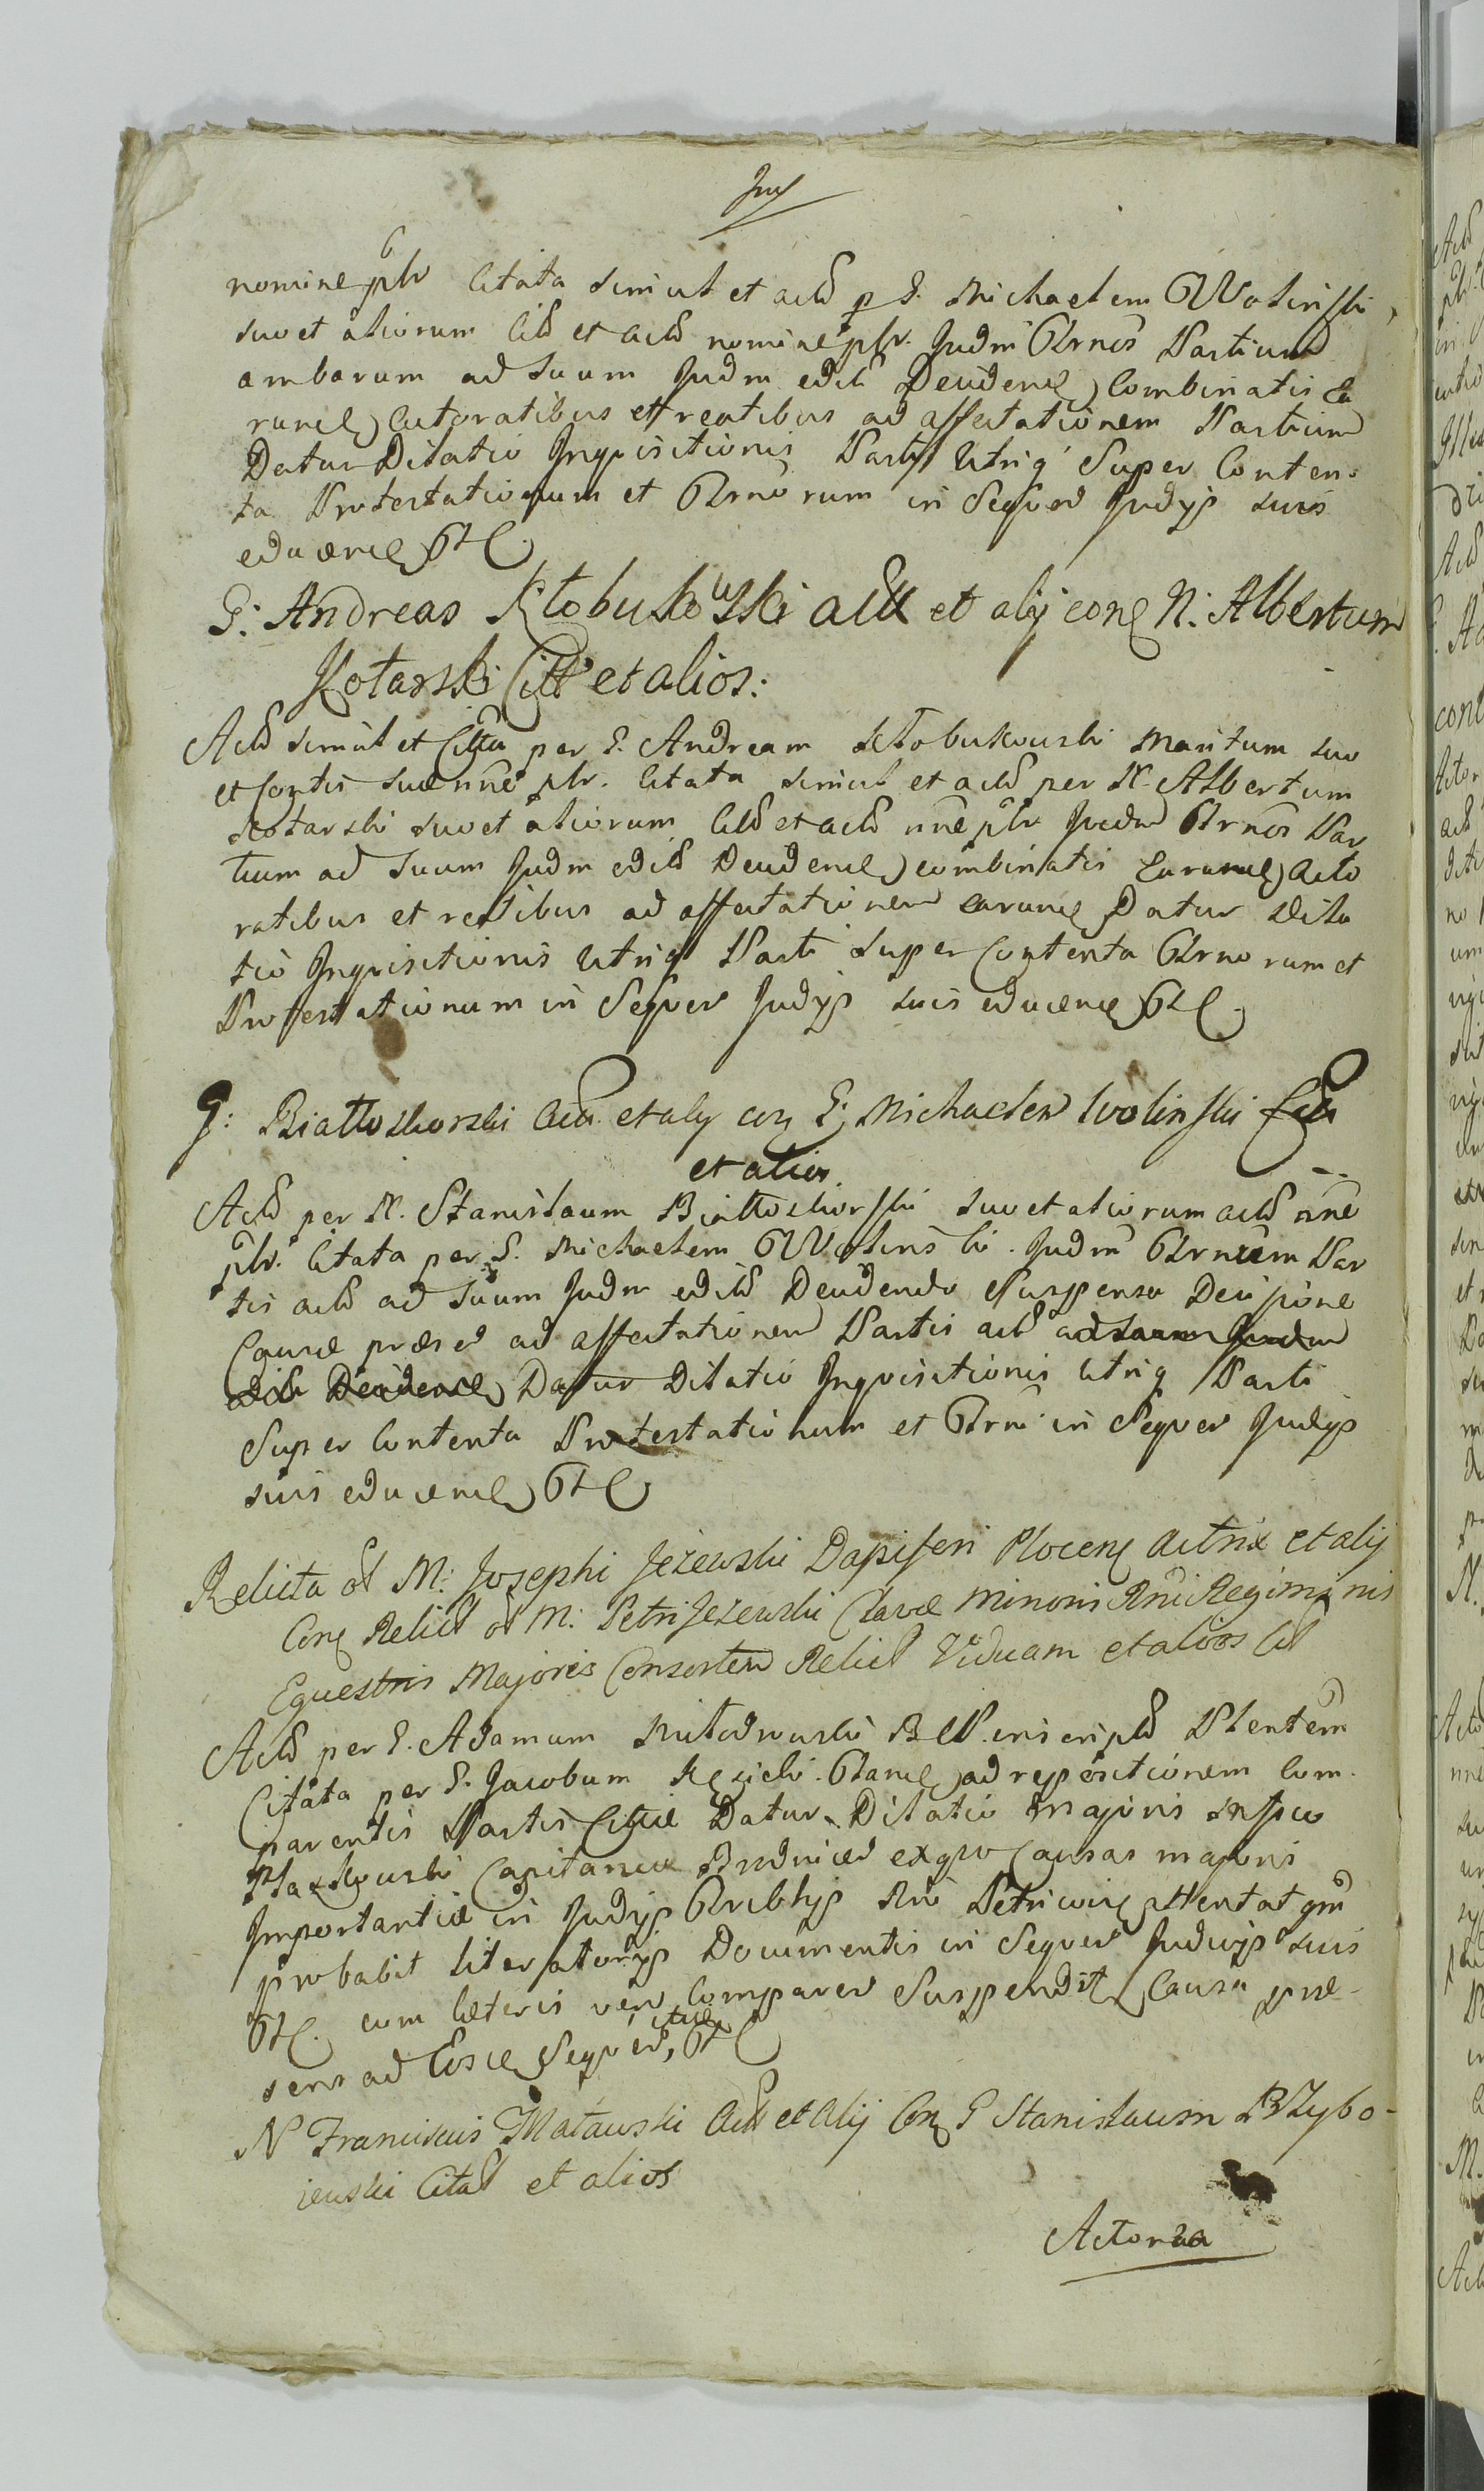 nomine plr Citata simul et actd p G. Michaelem Wolinski
suo et aliorum Citd et actd nomine plr. Judm Ctrnos Partium
ambarum ad suum Judm edit Decidend Combinatis Ea
rund Actoratibus et reatibus ad affectationem Partium
Datur Dilatio Inquisitionis Parti Utriq Super Conten=
ta Protestationum et Ctrnorum in Sequen Judys suis
educend Etc.
G: Andreas Kłobukowski actt et alij con N: Albertum
Kotarski Citt et alios:
Actd simul et Citta per G. Andream Kłobukowski Maritum suo
et Contis suæ nne plr. Citata simul et actd per N. Albertum
Kotarski suo et aliorum Citd et actd nne plr Judm Ctrnos Par
tium ad suum Judm edit Decidend combinatis Earund acto
ratibus et reatibus ad affectationem earund Datur Dila
tio Inquisitionis Utriq Parti Super Contenta Ctrnorum et
Protestationum in Sequen Judys suis educend Etc.
G: Białłoskorski Act. et alij con G: Michaelem Wolinski Citt
et alios.
Actd per N. Stanislaum Białłoskorski suo et aliorum actd nne
plr. Citata per G. Michaelem Wolinski. Judm Ctrnum Par
tis actd ad suum Judm edit Decidendo Suspensa Decisione
Causæ præs ad affectationem Partis act ad suum Judm
edit Decidend Datur Dilatio Inquisitionis Utriq Parti
Super Contenta Protestationum et Ctrni in Sequen Judys
suis educend Etc
Relicta ol M: Josephi Jeżewski Dapiferi Plocen Actrix et alij
Con Relict ol M: Petri Jeżewski Clavæ Minoris Rni Regiminis
Equestris Majoris Consortem Relict Viduam et alios Cit
Actd per G. Adamum Mitodrowski inscript Plentem
Citata per G. Jacobum Ctand ad repositionem Com-
parentis Partis Cittæ Datur Dilatio majoris
Capitaneæ ex quo Causas majoris
Importantiæ in Judys Triblys Rni Petricovien attentat qm
probabit literatorys Documentis in Sequen Judicys suis
Etc. cum Cæteris vero Comparen Suspendit Causa præ-
sens ad Eosce Sequen, Etc
N Franciscus Małowski Actt et Alij Con G Stanislaum Przybo-
jewski Citat et alios
Actorea